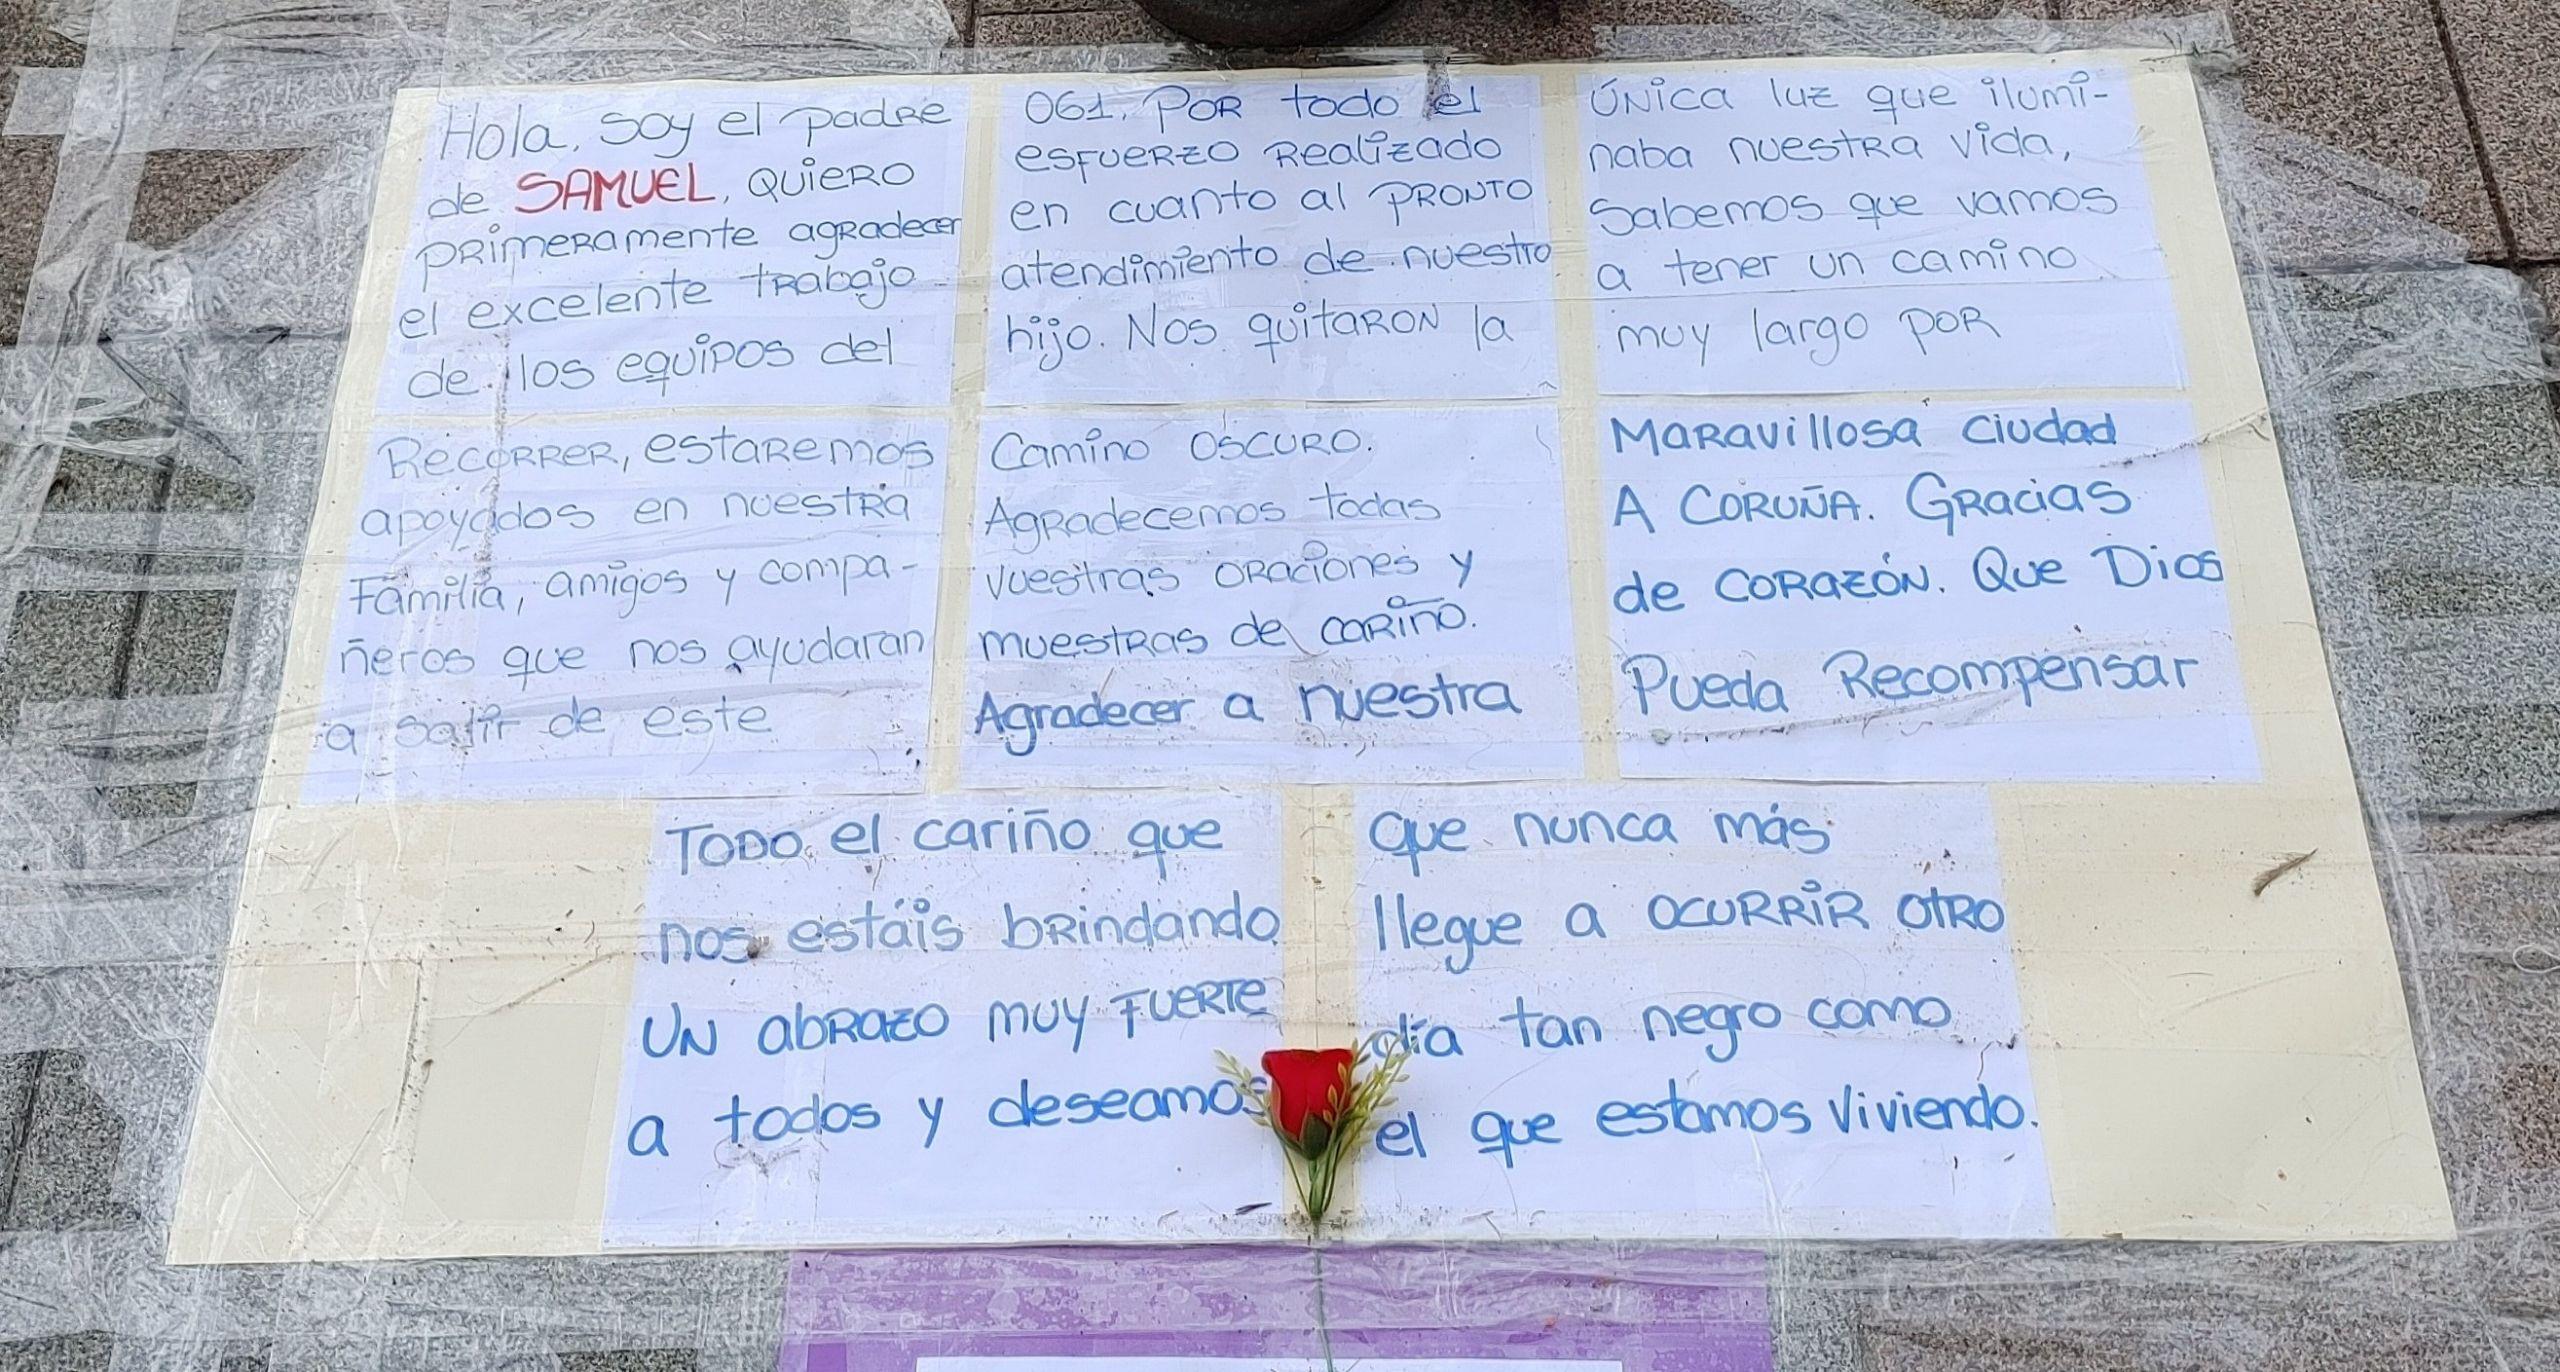 Hola, soy el padre
de SAMUEL, quiero
primeramente agradecer
el excelente trabajo
de los equipos del
061, por todo el
esfuerzo realizado
en cuanto al pronto
atendimiento de nuestro
hijo. Nos quitaron la
única luz que ilumi-
naba nuestra vida,
Sabemos que vamos
a tener un camino
muy largo por
Recorrer, estaremos
apoyados en nuestra
Familia, amigos y compa-
ñeros que nos ayudaran
a salir de este
Camino oscuro.
Agradecemos todas
vuestras oraciones y
muestras de cariño.
Agradecer a nuestra
Maravillosa ciudad
A CORUÑA. Gracias
de corazón. Que Dios
Pueda Recompensar
Todo el cariño que
nos estáis brindando
Un abrazo muy fuerte
a todos y deseamos
que nunca más
llegue a ocurrir otro
día tan negro como
el que estamos viviendo.